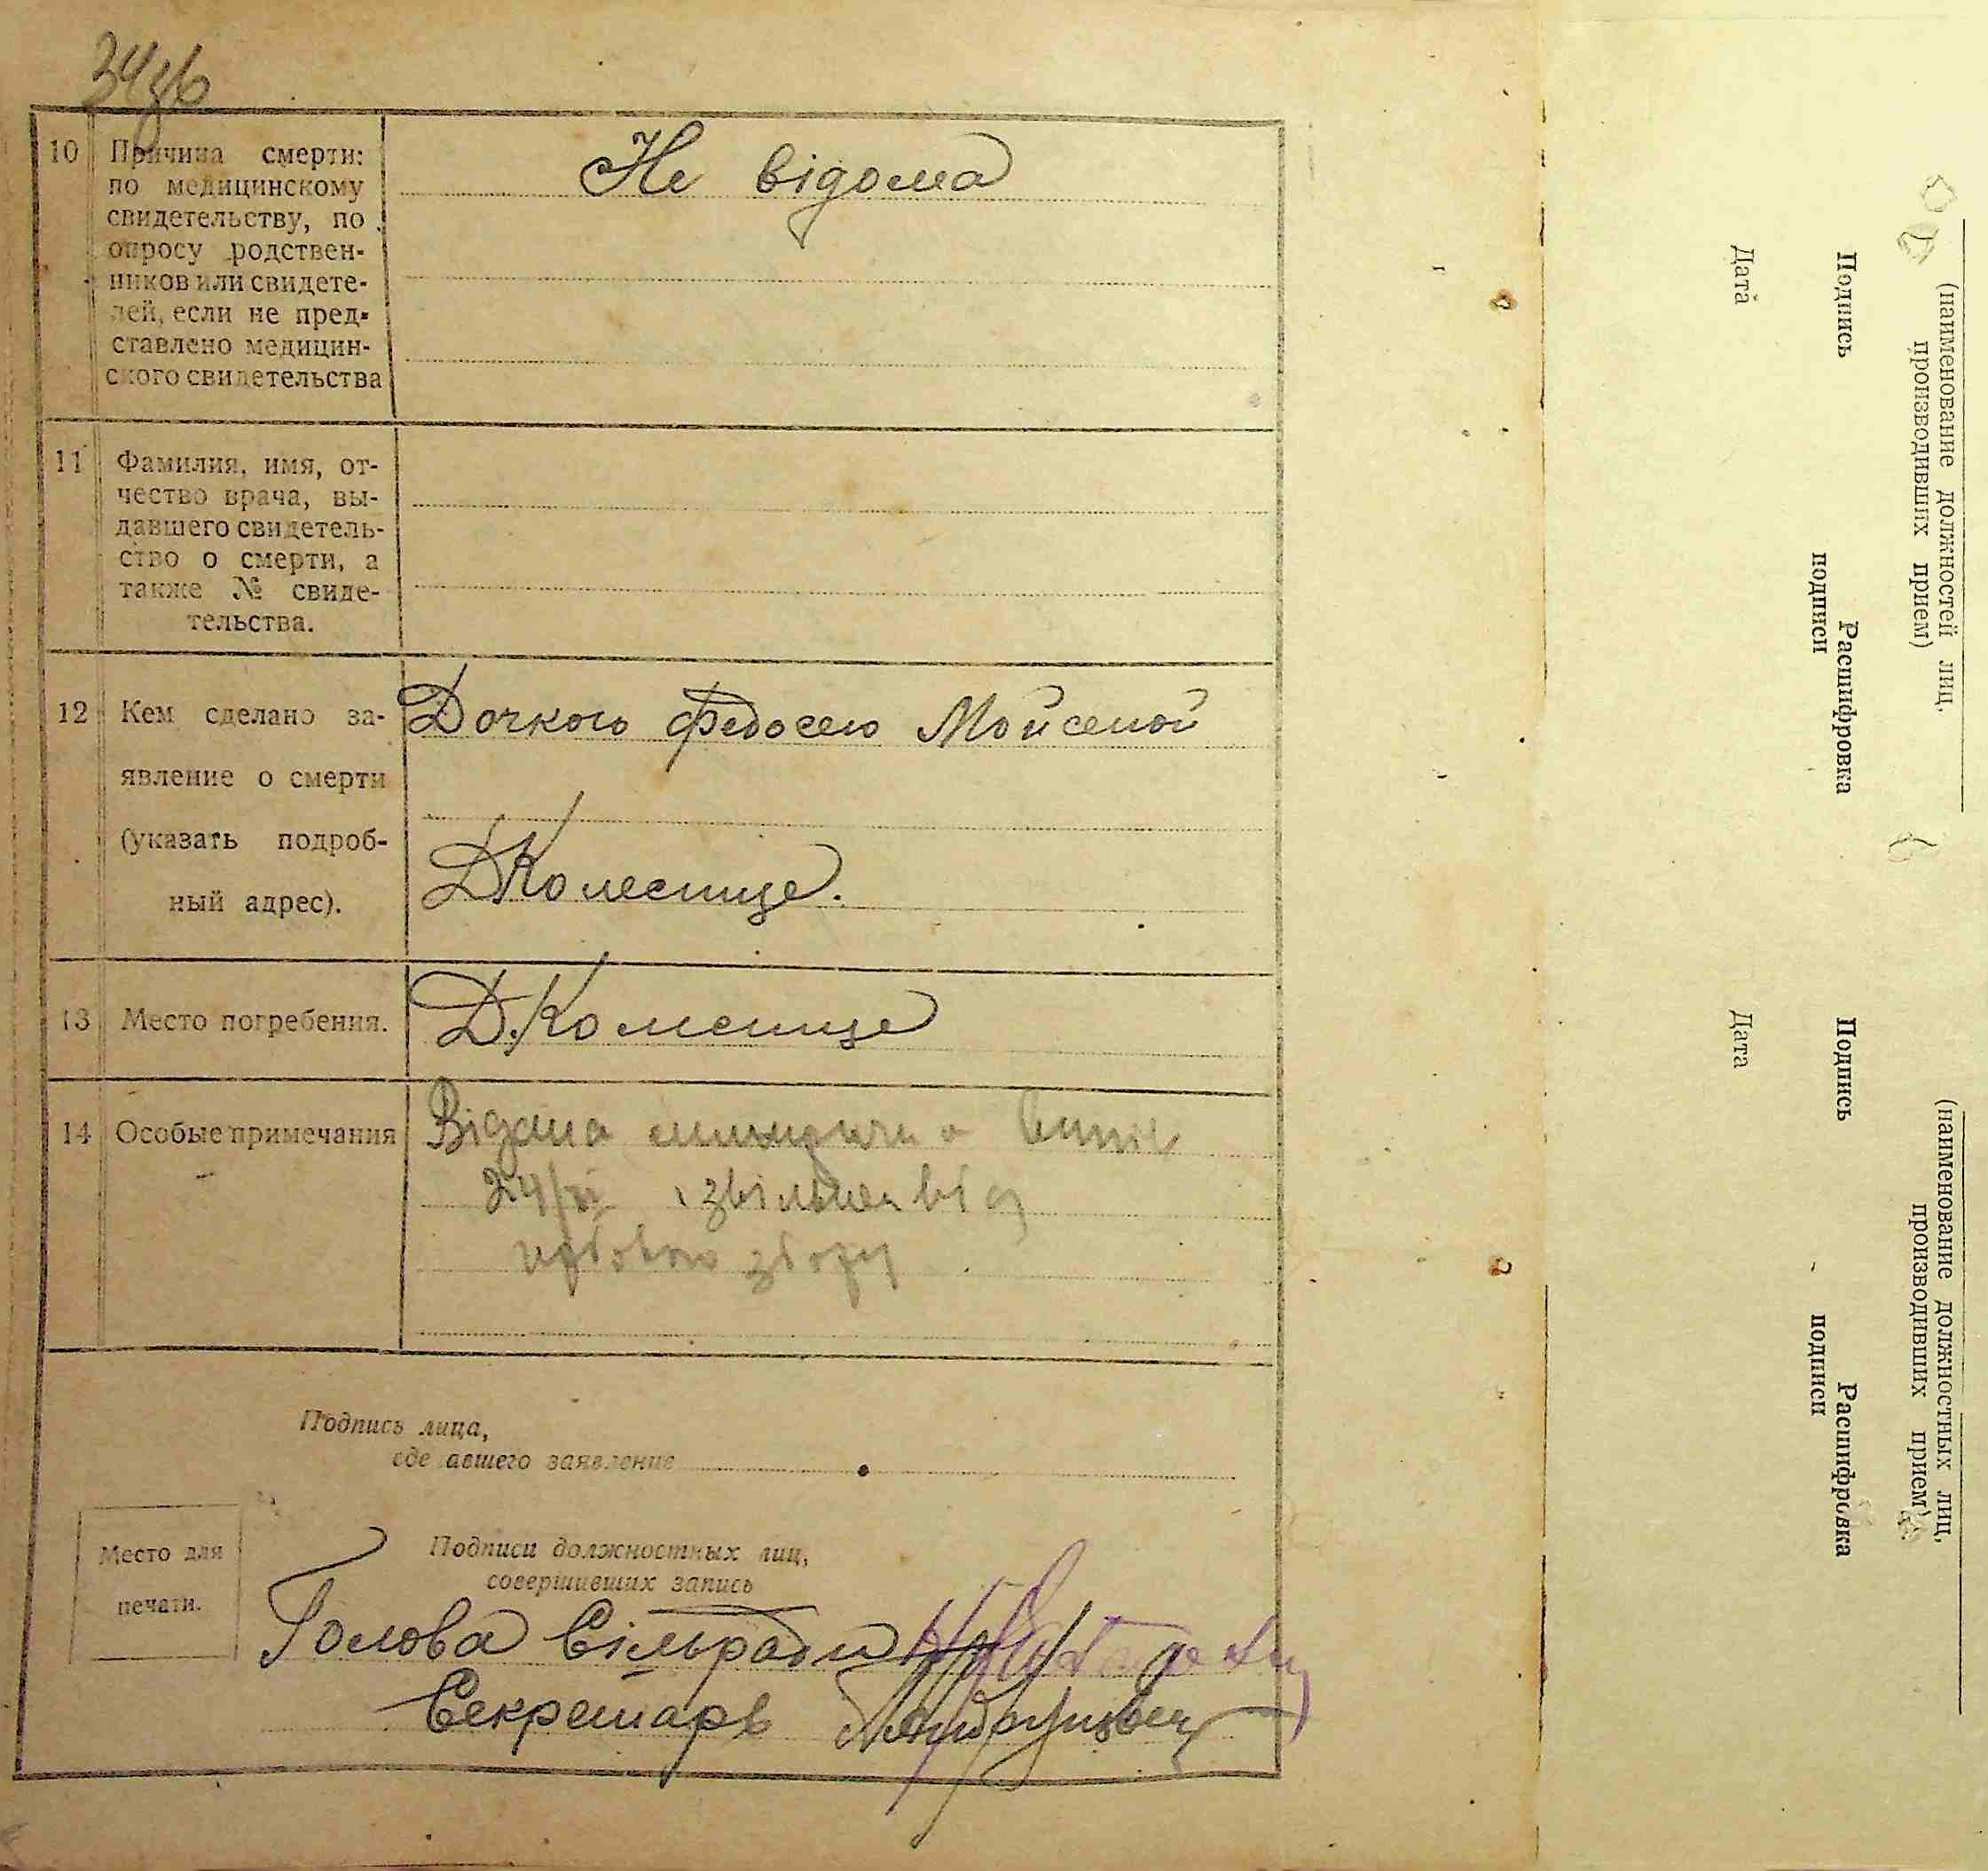 34зв
10 Причина смерти:
по медицинскому
свидетельству, по
опросу родствен-
ников или свидете-
лей, если не пред-
ставлено медицин-
ского свидетельства
Не відома
11 Фамилия, имя, от-
чество врача, вы-
давшего свидетель-
ство о смерти, а
также № свиде-
тельства.
12 Кем сделано за-
явление о смерти
(указать подроб-
ный адрес).
Дочкою Федосею Мойсеной
Д Комегице.
13 Место погребения.
Д. Комегице
14 Особые примечания
Відана
24/VI і звільнен від
збору
Подпись лица,
сде авшего заявление
Место для
печати.
Подписи должностных лиц,
совершивших запись
Голова Сільради
Секретарь
(наименование должностей лиц,
производивших прием)
Подпись
Расшифровка
подписи
Дата
(наименование должностных лиц,
производивших прием)
Подпись
Расшифровка
подписи
Дата